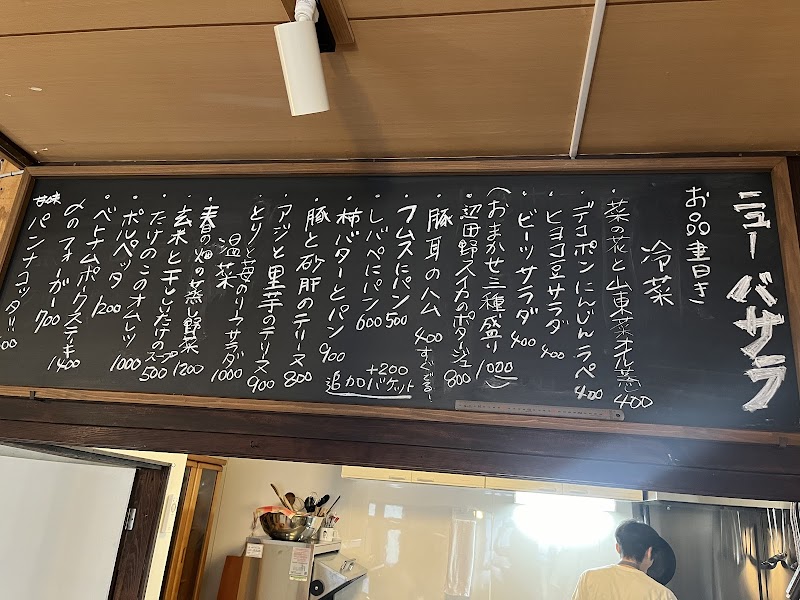 ニューバサラ
お品書き
冷菜
・菜の花と山東菜オイル蒸し 400
・デコポンにんじんラペ 400
・ヒヨコ豆サラダ 400
・ビーツサラダ 400
(おまかせ三種盛り 1000)
・辺田野スイカのポタージュ 800
・豚耳のハム 400 すぐでる!
・フムスにパン 500
・レバペにパン 600
・柿バターとパン 900
+200
追加バケット
・豚と砂肝のテリーヌ 800
・アジと里芋のテリーヌ 900
・とりハムと苺のリーフサラダ 1000
温菜
・春の畑の蒸し野菜 1200
・玄米と干ししいたけのスープ 500
・たけのこのオムレツ 1000
・ポルペッタ 1200
・ベトナムポークステーキ 1400
・〆のフォーガー 700
甘味
パンナコッタ